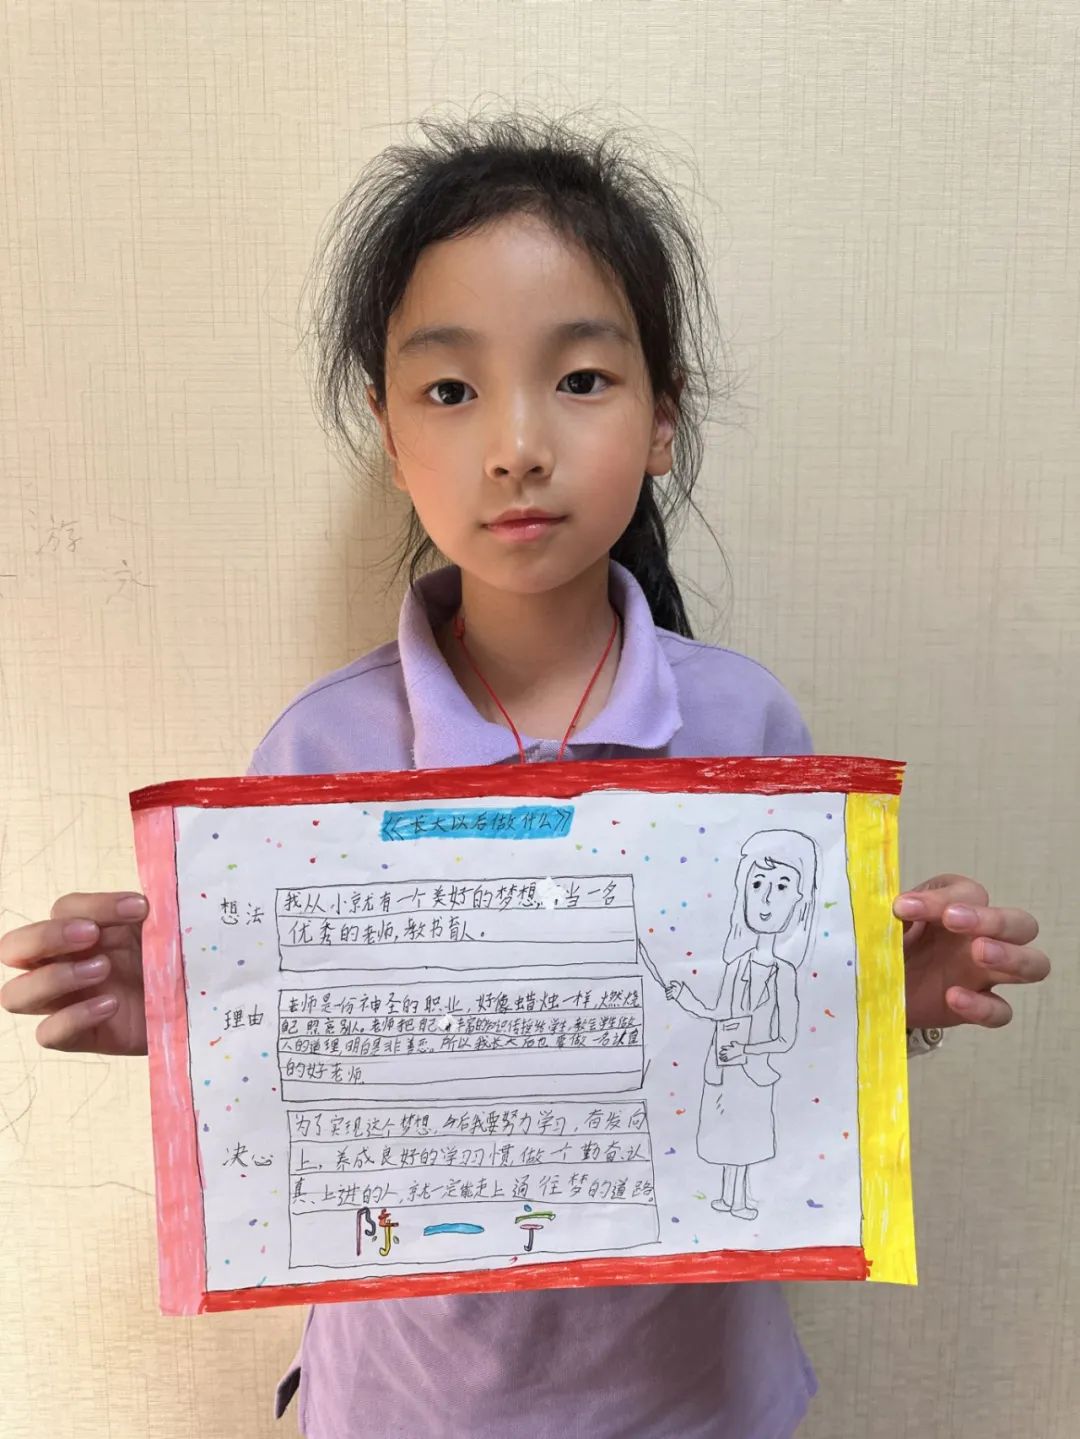 《长大以后做什么》
想法
我从小就有一个美好的梦想,当一名
优秀的老师,教书育人。
理由
老师是一份神圣的职业,好像蜡烛一样,燃烧
自己照亮别人。老师把自己丰富的知识传授给学生,教会学生做
人的道理,明白是非善恶。所以我长大后也要做一名
的好老师
决心
为了实现这个梦想,今后我要努力学习,奋发向
上,养成良好的学习习惯,做一个勤奋、认
真、上进的人,就一定能走上通往梦的道路。
陈一宁
游
元